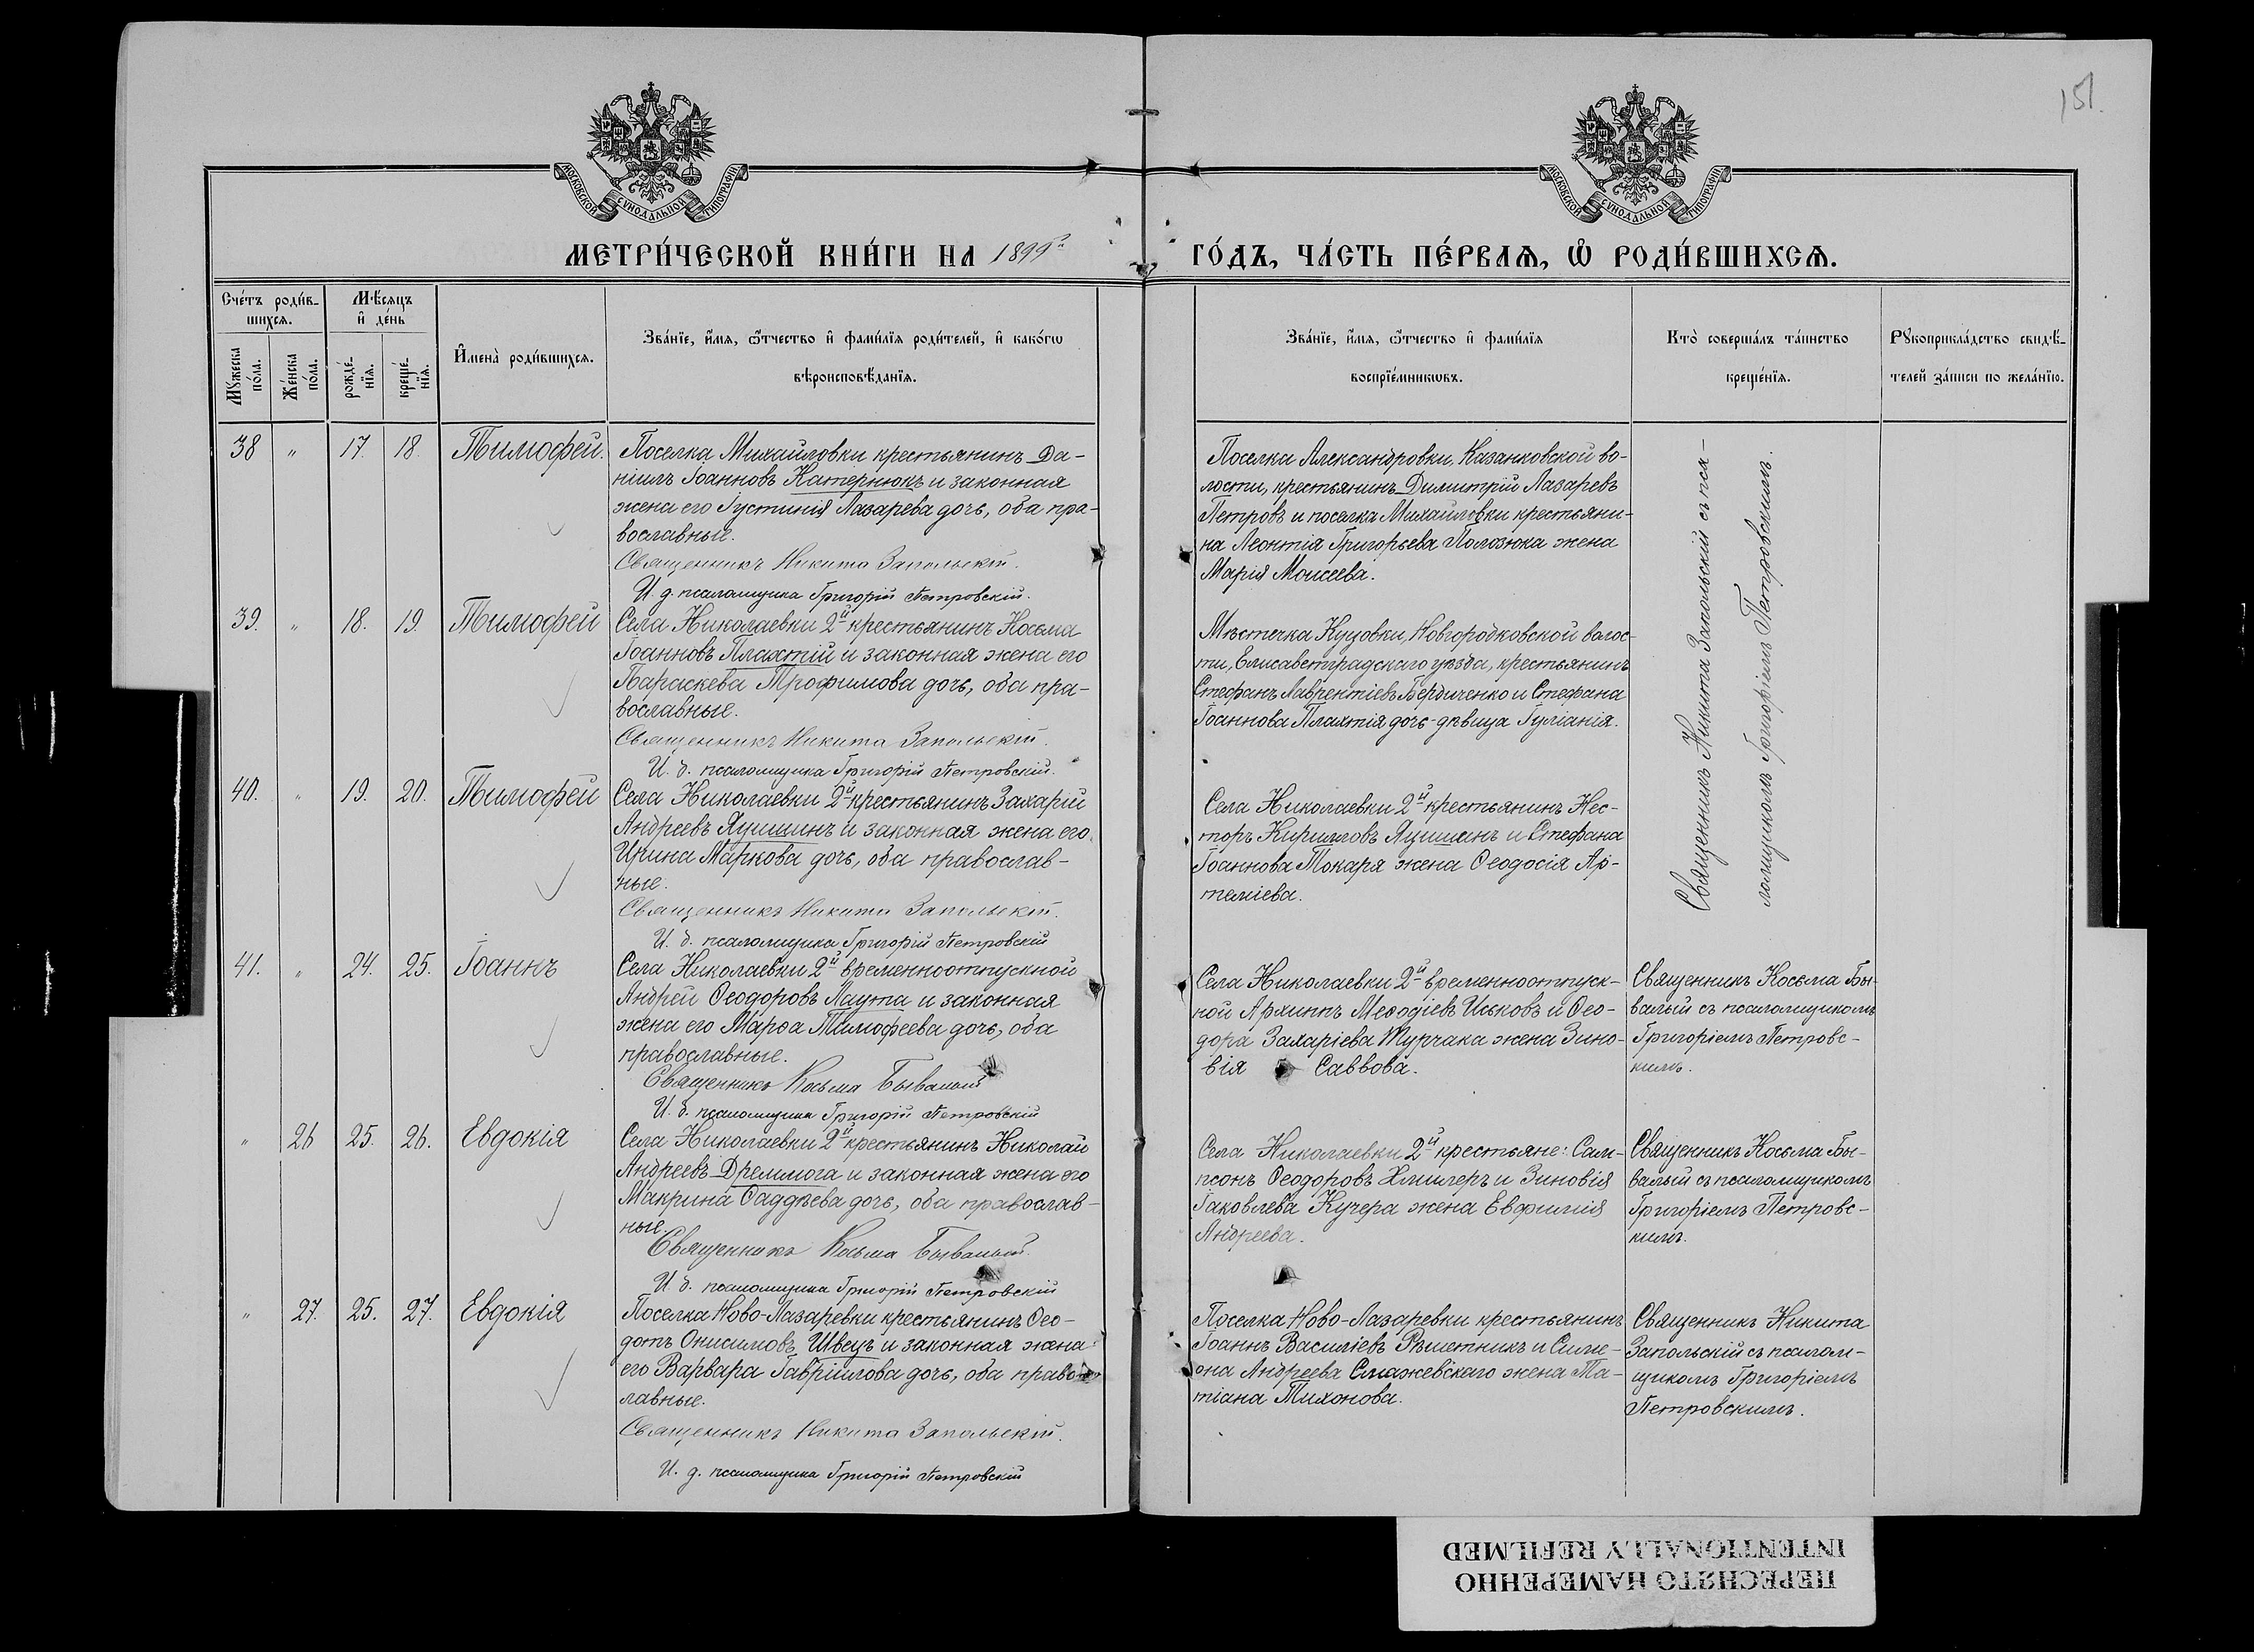 151.
МОСКОВСКОЙ СѴНОДАЛЬНОЙ ТИПОГРАФІИ
МОСКОВСКОЙ СѴНОДАЛЬНОЙ ТИПОГРАФІИ
МЕТРИ́ЧЕСКОЙ КНИ́ГИ НА 1899й
ГО́ДЪ, ЧА́СТЬ ПЕ́РВАѦ, Ѡ҆ РОДИ́ВШИХСѦ.
Сче́тъ роди́в-
шихсѧ.
Мꙋ́жеска
по́ла.
Же́нска
по́ла.
Мѣ́сѧцъ
и҆ де́нь
рожде́-
нїѧ.
креще́-
нїѧ.
И҆мена̀ роди́вшихсѧ.
Зва́нїе, и҆́мѧ, ѻ҆́тчество и҆ фами́лїѧ роди́телей, и҆ како́гѡ
вѣроисповѣ́данїѧ.
Зва́нїе, и҆́мѧ, ѻ҆́тчество и҆ фами́лїѧ
воспрїе́мникѡвъ.
Кто̀ соверша́лъ та́инство
креще́нїѧ.
Рꙋкоприкла́дство свидѣ́-
телей за́писи по жела́нїю.
38 " 17. 18. Тимофей.
Поселка Михайловки крестьянинъ Да-
ніилъ Іоанновъ Катернюкъ и законная
жена его Іустинія Лазарева дочь, оба пра-
вославные.
Священникъ Никита Запольскій.
И. д. псаломщика Григорій Петровскій.
Поселка Александровки, Казанковской во-
лости, крестьянинъ Димитрій Лазаревъ
Петровъ и поселка Михайловки крестьяни-
на Леонтія Григорьева Полозюка жена
Марія Моисеева.
Священникъ Никита Запольскій съ пса-
ломщикомъ Григоріемъ Петровскимъ.
39. " 18. 19. Тимофей
Села Николаевки 2й крестьянинъ Косьма
Іоанновъ Плахтій и законная жена его
Параскева Трофимова дочь, оба пра-
вославные.
Священникъ Никита Запольскій.
И. д. псаломщика Григорій Петровскій.
Мѣстечка Куцовки, Новгородковской волос-
ти, Елисаветградскаго уѣзда, крестьянинъ
Стефанъ Лаврентіевъ Бердиченко и Стефана
Іоаннова Плахтія дочь-дѣвица Іуліанія.
40. " 19. 20. Тимофей
Села Николаевки 2й крестьянинъ Захарій
Андреевъ Яцишинъ и законная жена его
Ирина Маркова дочь, оба православ-
ные.
Священникъ Никита Запольскій.
И. д. псаломщика Григорій Петровскій
Села Николаевки 2й крестьянинъ Нес-
торъ Кирилловъ Яцишинъ и Стефана
Іоаннова Токаря жена Ѳеодосія Ар-
теміева.
41. " 24. 25. Іоаннъ
Села Николаевки 2й временноотпускной
Андрей Ѳеодоровъ Лаута и законная
жена его Марѳа Тимофеева дочь, оба
православные.
Священникъ Косьма Бывалый
И. д. псаломщика Григорій Петровскій
Села Николаевки 2й временноотпуск-
ной Архиппъ Меѳодіевъ Иськовъ и Ѳео-
дора Захаріева Турчака жена Зино-
вія Саввова.
Священникъ Косьма Бы-
валый съ псаломщикомъ
Григоріемъ Петровс-
кимъ.
" 26 25. 26. Евдокія
Села Николаевки 2й крестьянинъ Николай
Андреевъ Дремлюга и законная жена его
Макрина Ѳаддѣева дочь, оба православ-
ные.
Священникъ Косьма Бывалый.
И. д. псаломщика Григорій Петровскій
Села Николаевки 2й крестьяне: Сам-
псонъ Ѳеодоровъ и Зиновія
Іаковлева Кучера жена Евфимія
Андреева.
Священникъ Косьма Бы-
валый съ псаломщикомъ
Григоріемъ Петровс-
кимъ.
" 27. 25. 27. Евдокія
Поселка Ново-Лазаревки крестьянинъ Ѳео-
дотъ Онисимовъ Швецъ и законная жена
его Варвара Гавріилова дочь, оба право-
лавные.
Священникъ Никита Запольскій.
И. д. псаломщика Григорій Петровскій
Поселка Ново-Лазаревки крестьянинъ
Іоаннъ Василіевъ Рѣшетникъ и Симе-
она Андреева Смажевскаго жена Та-
тіана Тихонова.
Священникъ Никита
Запольскій съ псалом-
щикомъ Григоріемъ
Петровскимъ.
ПЕРЕСНЯТО НАМЕРЕННО
INTENTIONALLY REFILMED